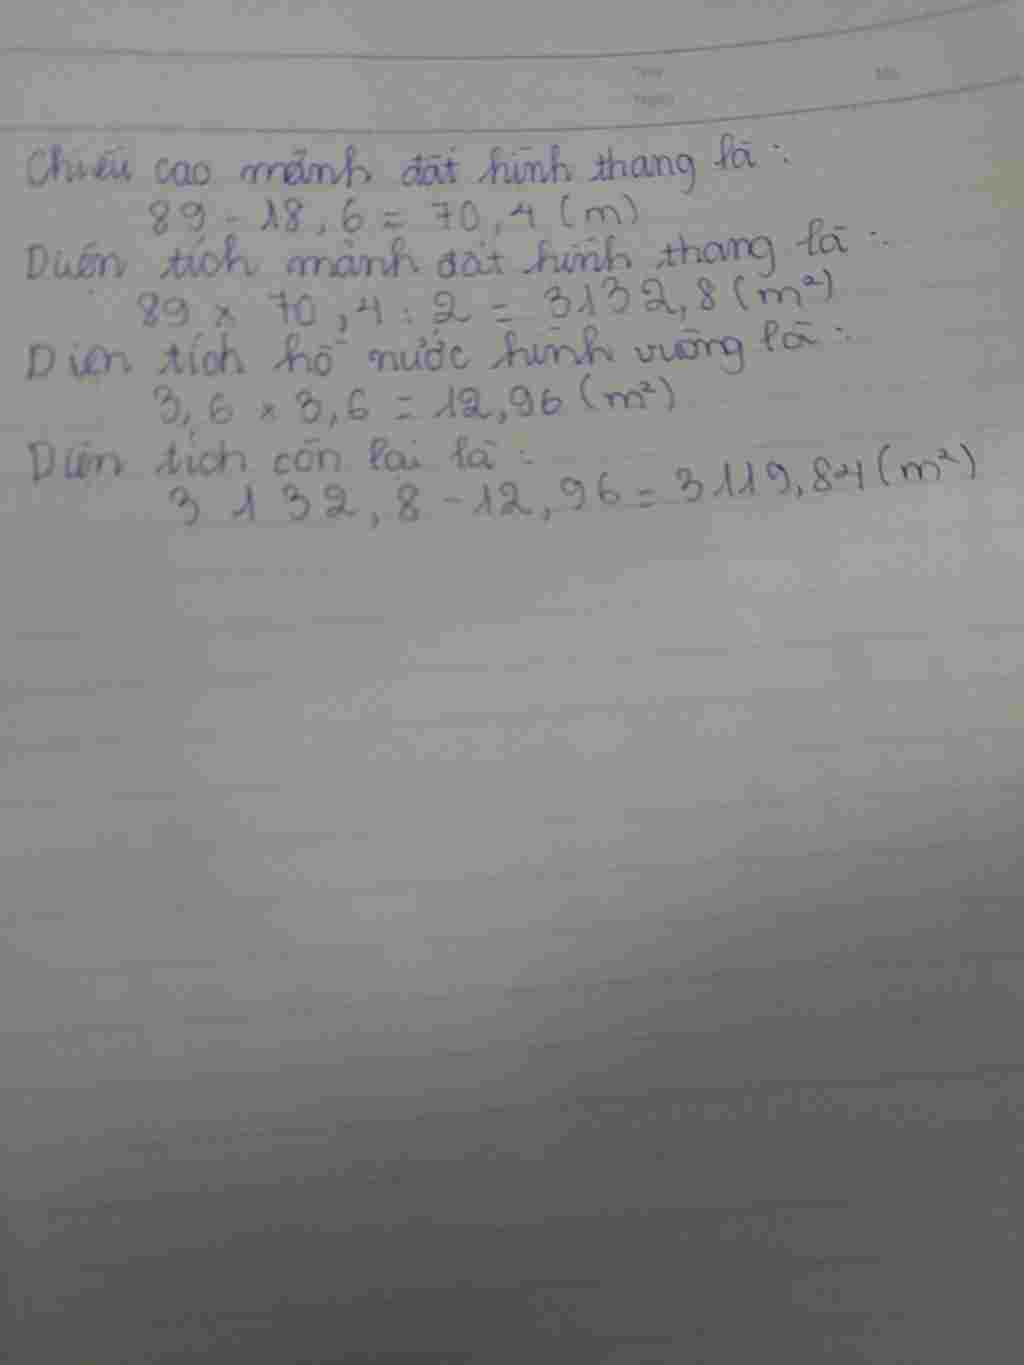 Chiều cao mảnh đất hình thang là:
89 - 18,6 = 70,4 (m)
Diện tích mảnh đất hình thang là:
89 x 70,4 : 2 = 3132,8 (m²)
Diện tích hồ nước hình vuông là:
3,6 x 3,6 = 12,96 (m²)
Diện tích còn lại là:
3132,8 - 12,96 = 3119,84 (m²)